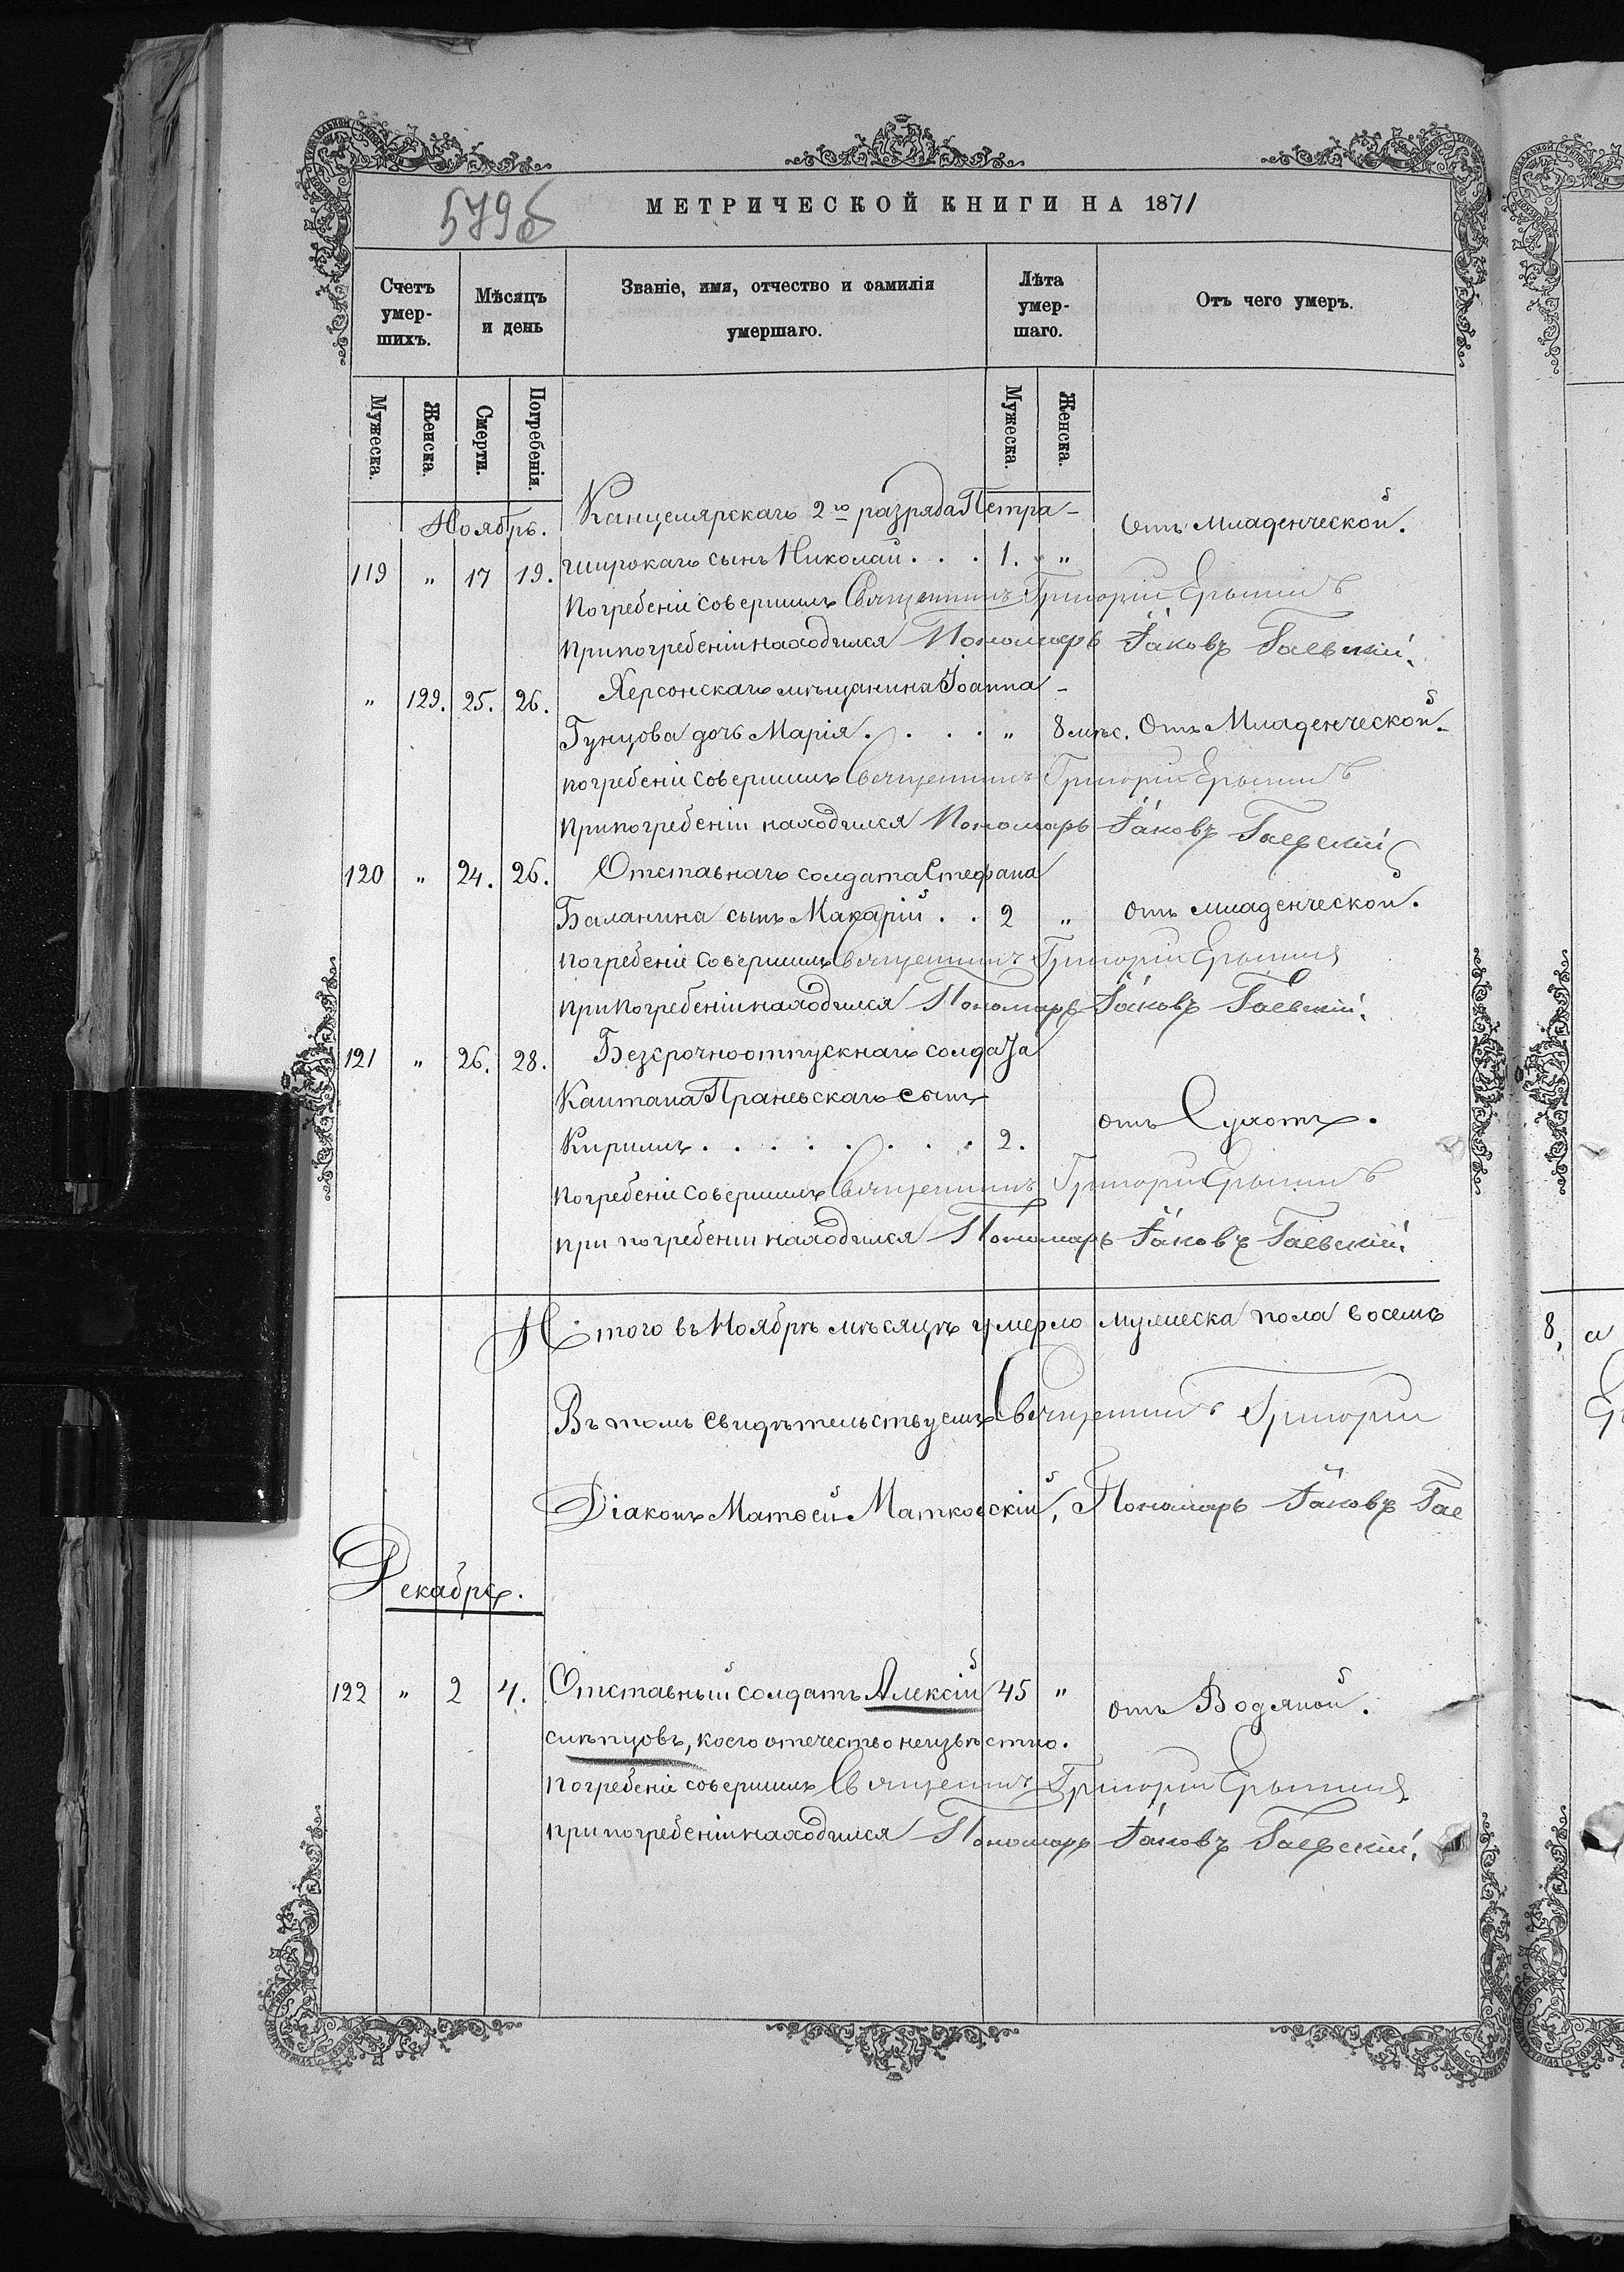 579б
МЕТРИЧЕСКОЙ КНИГИ НА 1871
Счетъ умер- шихъ.
Мѣсяцъ и день
Званіе, имя, отчество и фамилія умершаго.
Лѣта умер- шаго.
Отъ чего умеръ.
Мужеска. Женска. Смерти. Погребенія. Мужеска. Женска.
Ноябрь. Канцелярскаго 2го разряда Петра- Отъ Младенческой.
119 " 17 19. Широкаго сынъ Николай . . . 1. "
Погребеніе совершилъ Священникъ Григорій
При погребеніи находился Пономарь Іаковъ Гаевскій.
" 129. 25. 26. Херсонскаго мѣщанина Іоанна-
Гунцова дочь Марія . . . . " 8 мѣс. Отъ Младенческой.
погребеніе совершилъ Священникъ Григорій
При погребеніи находился Пономарь Іаковъ Гаевскій
120 " 24. 26. Отставнаго солдата Стефана
Баланина сынъ Макарій . . 2 " отъ младенческой.
погребеніе совершилъ Священникъ Григорій
при погребеніи находился Пономарь Іаковъ Гаевскій.
121 " 26. 28. Безсрочноотпускнаго солдата
Каитана Граневскаго сынъ
Кирилъ . . . . . . . . . 2. отъ Сухотъ.
погребеніе совершилъ Священникъ Григорій
при погребеніи находился Пономарь Іаковъ Гаевскій.
Итого въ Ноябрѣ мѣсяцѣ умерло мужеска пола восемь
8, а
Въ томъ свидѣтельствуемъ Священникъ Григорій
Діаконъ Матѳей Матковскій, Пономарь Іаковъ Гае
Декабрь.
122 " 2 4. Отставный солдатъ Алексій 45 " отъ Водяной.
слѣпцовъ, коего отечество неизвѣстно.
погребеніе совершилъ Священникъ Григорій
при погребеніи находился Пономарь Іаковъ Гаевскій.